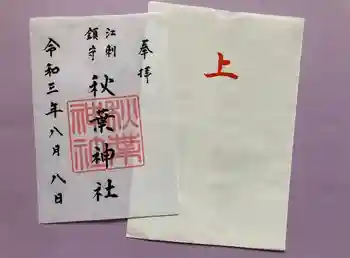 奉拝
江刺
鎮守
秋葉神社
秋葉神社
令和三年八月八日
上